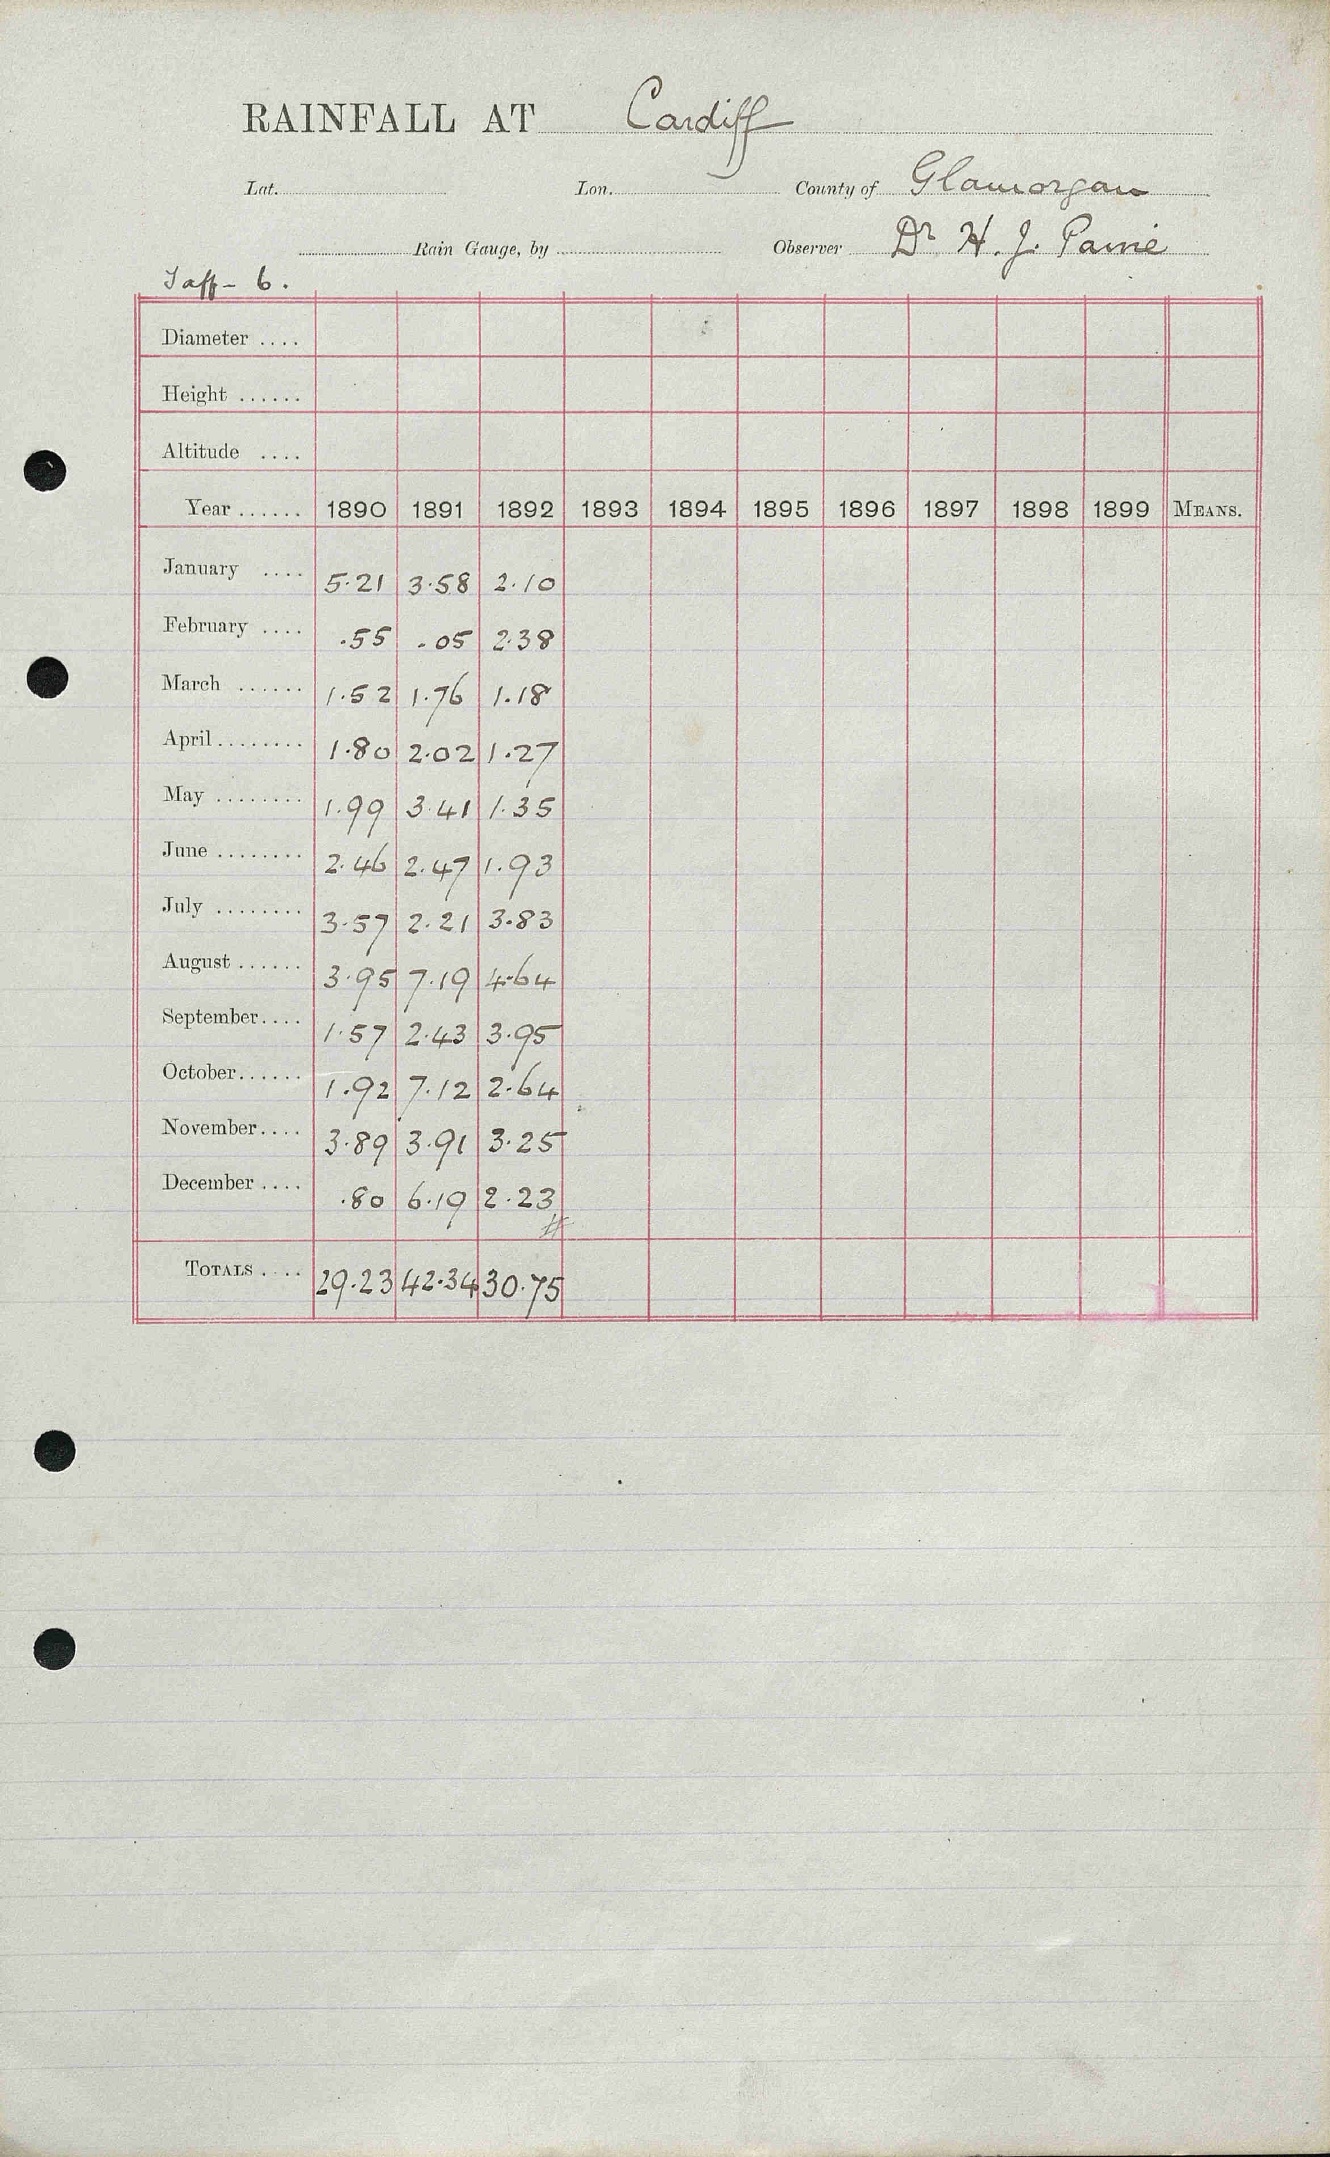 RAINFALL AT Cardiff
Lat. Lon. County of Glamorgan
Rain Gauge, by Observer Dr H. J. Paine
Taff - 6.
Diameter ....
Height ......
Altitude ....
Year ...... 1890 1891 1892 1893 1894 1895 1896 1897 1898 1899 MEANS.
January .... 5.21 3.58 2.10
February .... .55 .05 2.38
March ...... 1.52 1.76 1.18
April ........ 1.80 2.02 1.27
May ........ 1.99 3.41 1.35
June ........ 2.46 2.47 1.93
July ........ 3.57 2.21 3.83
August ...... 3.95 7.19 4.64
September .... 1.57 2.43 3.95
October ...... 1.92 7.12 2.64
November .... 3.89 3.91 3.25
December .... .80 6.19 2.23
#
TOTALS .... 29.23 42.34 30.75